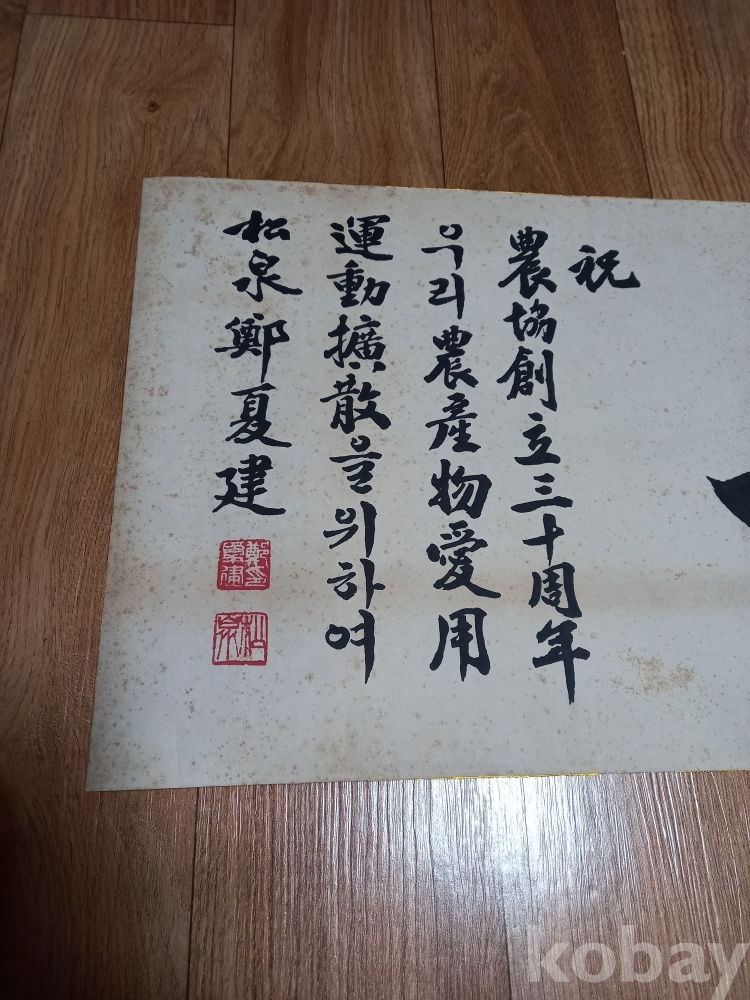 祝
農協創立三十周年
우리農產物愛用
運動擴散을위하여
松泉鄭夏建
鄭夏建印
松泉
kobay